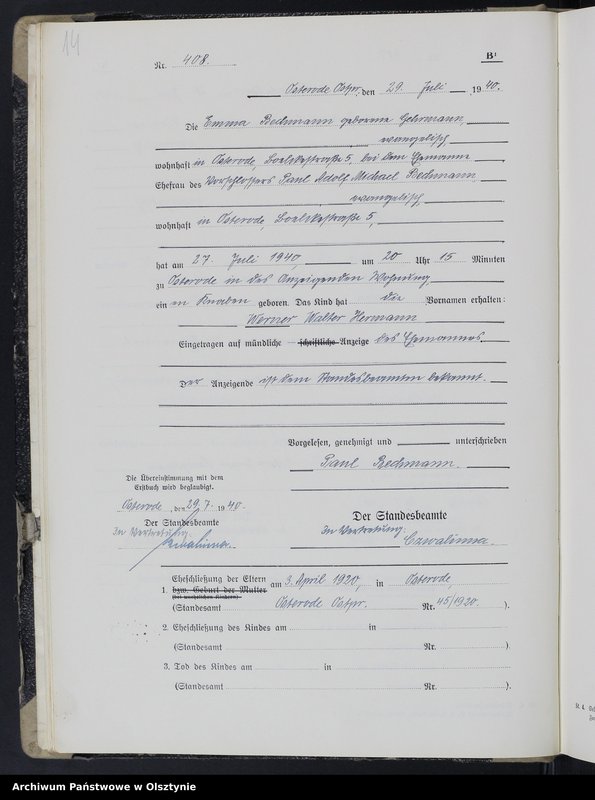 14
Nr. 408.
B¹
Osterode Ostpr., den 29. Juli 1940.
Die Emma Bechmann geborene Gehrmann
evangelisch
wohnhaft in Osterode, Boelckestraße 5, bei dem Ehemanne
Ehefrau des Vorschlossers Paul Adolf Michael Bechmann
evangelisch,
wohnhaft in Osterode, Boelckestraße 5,
hat am 27. Juli 1940, um 20 Uhr 15 Minuten
zu Osterode in des Anzeigenden Wohnung
ein en Knaben geboren. Das Kind hat die Vornamen erhalten:
Werner Walter Hermann
Eingetragen auf mündliche schriftliche Anzeige des Ehemannes
Der Anzeigende ist dem Standesbeamten bekannt.
Vorgelesen, genehmigt und unterschrieben
Paul Bechmann.
Die Übereinstimmung mit dem
Erstbuch wird beglaubigt.
Osterode, den 29. 7. 1940.
Der Standesbeamte
In Vertretung.
Czwalinna.
Der Standesbeamte
In Vertretung.
Czwalinna.
1. Eheschließung der Eltern am 3. April 1920, in Osterode
bzw. Geburt der Mutter
(bei unehelichen Kindern)
(Standesamt Osterode Ostpr. Nr. 45/1920. ).
2. Eheschließung des Kindes am in
(Standesamt Nr. ).
3. Tod des Kindes am in
(Standesamt Nr. ).
Archiwum Państwowe w Olsztynie